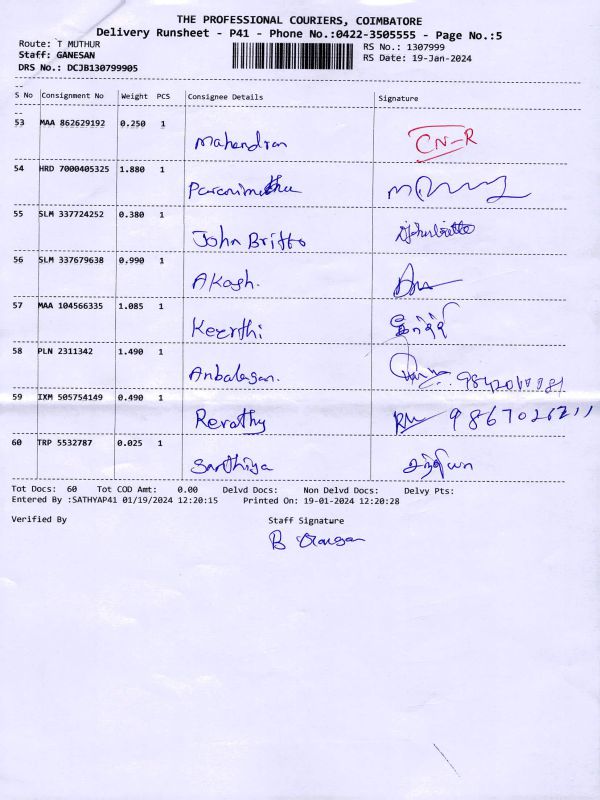 THE PROFESSIONAL COURIERS, COIMBATORE
Delivery Runsheet - P41 - Phone No.:0422-3505555 - Page No.:5
Route: T MUTHUR RS No.: 1307999
Staff: GANESAN RS Date: 19-Jan-2024
DRS No.: DCJB130799905
S No Consignment No Weight PCS Consignee Details Signature
53 MAA 862629192 0.250 1 Mahendran CN-R
54 HRD 7000405325 1.880 1
55 SLM 337724252 0.380 1 John Britto
56 SLM 337679638 0.990 1 Akash.
57 MAA 104566335 1.085 1 Keerthi
58 PLN 2311342 1.490 1 Anbalagan.
59 IXM 505754149 0.490 1 Revathy
60 TRP 5532787 0.025 1 Santhiya சந்தியா
Tot Docs: 60 Tot COD Amt: 0.00 Delvd Docs: Non Delvd Docs: Delvy Pts:
Entered By :SATHYAP41 01/19/2024 12:20:15 Printed On: 19-01-2024 12:20:28
Verified By Staff Signature